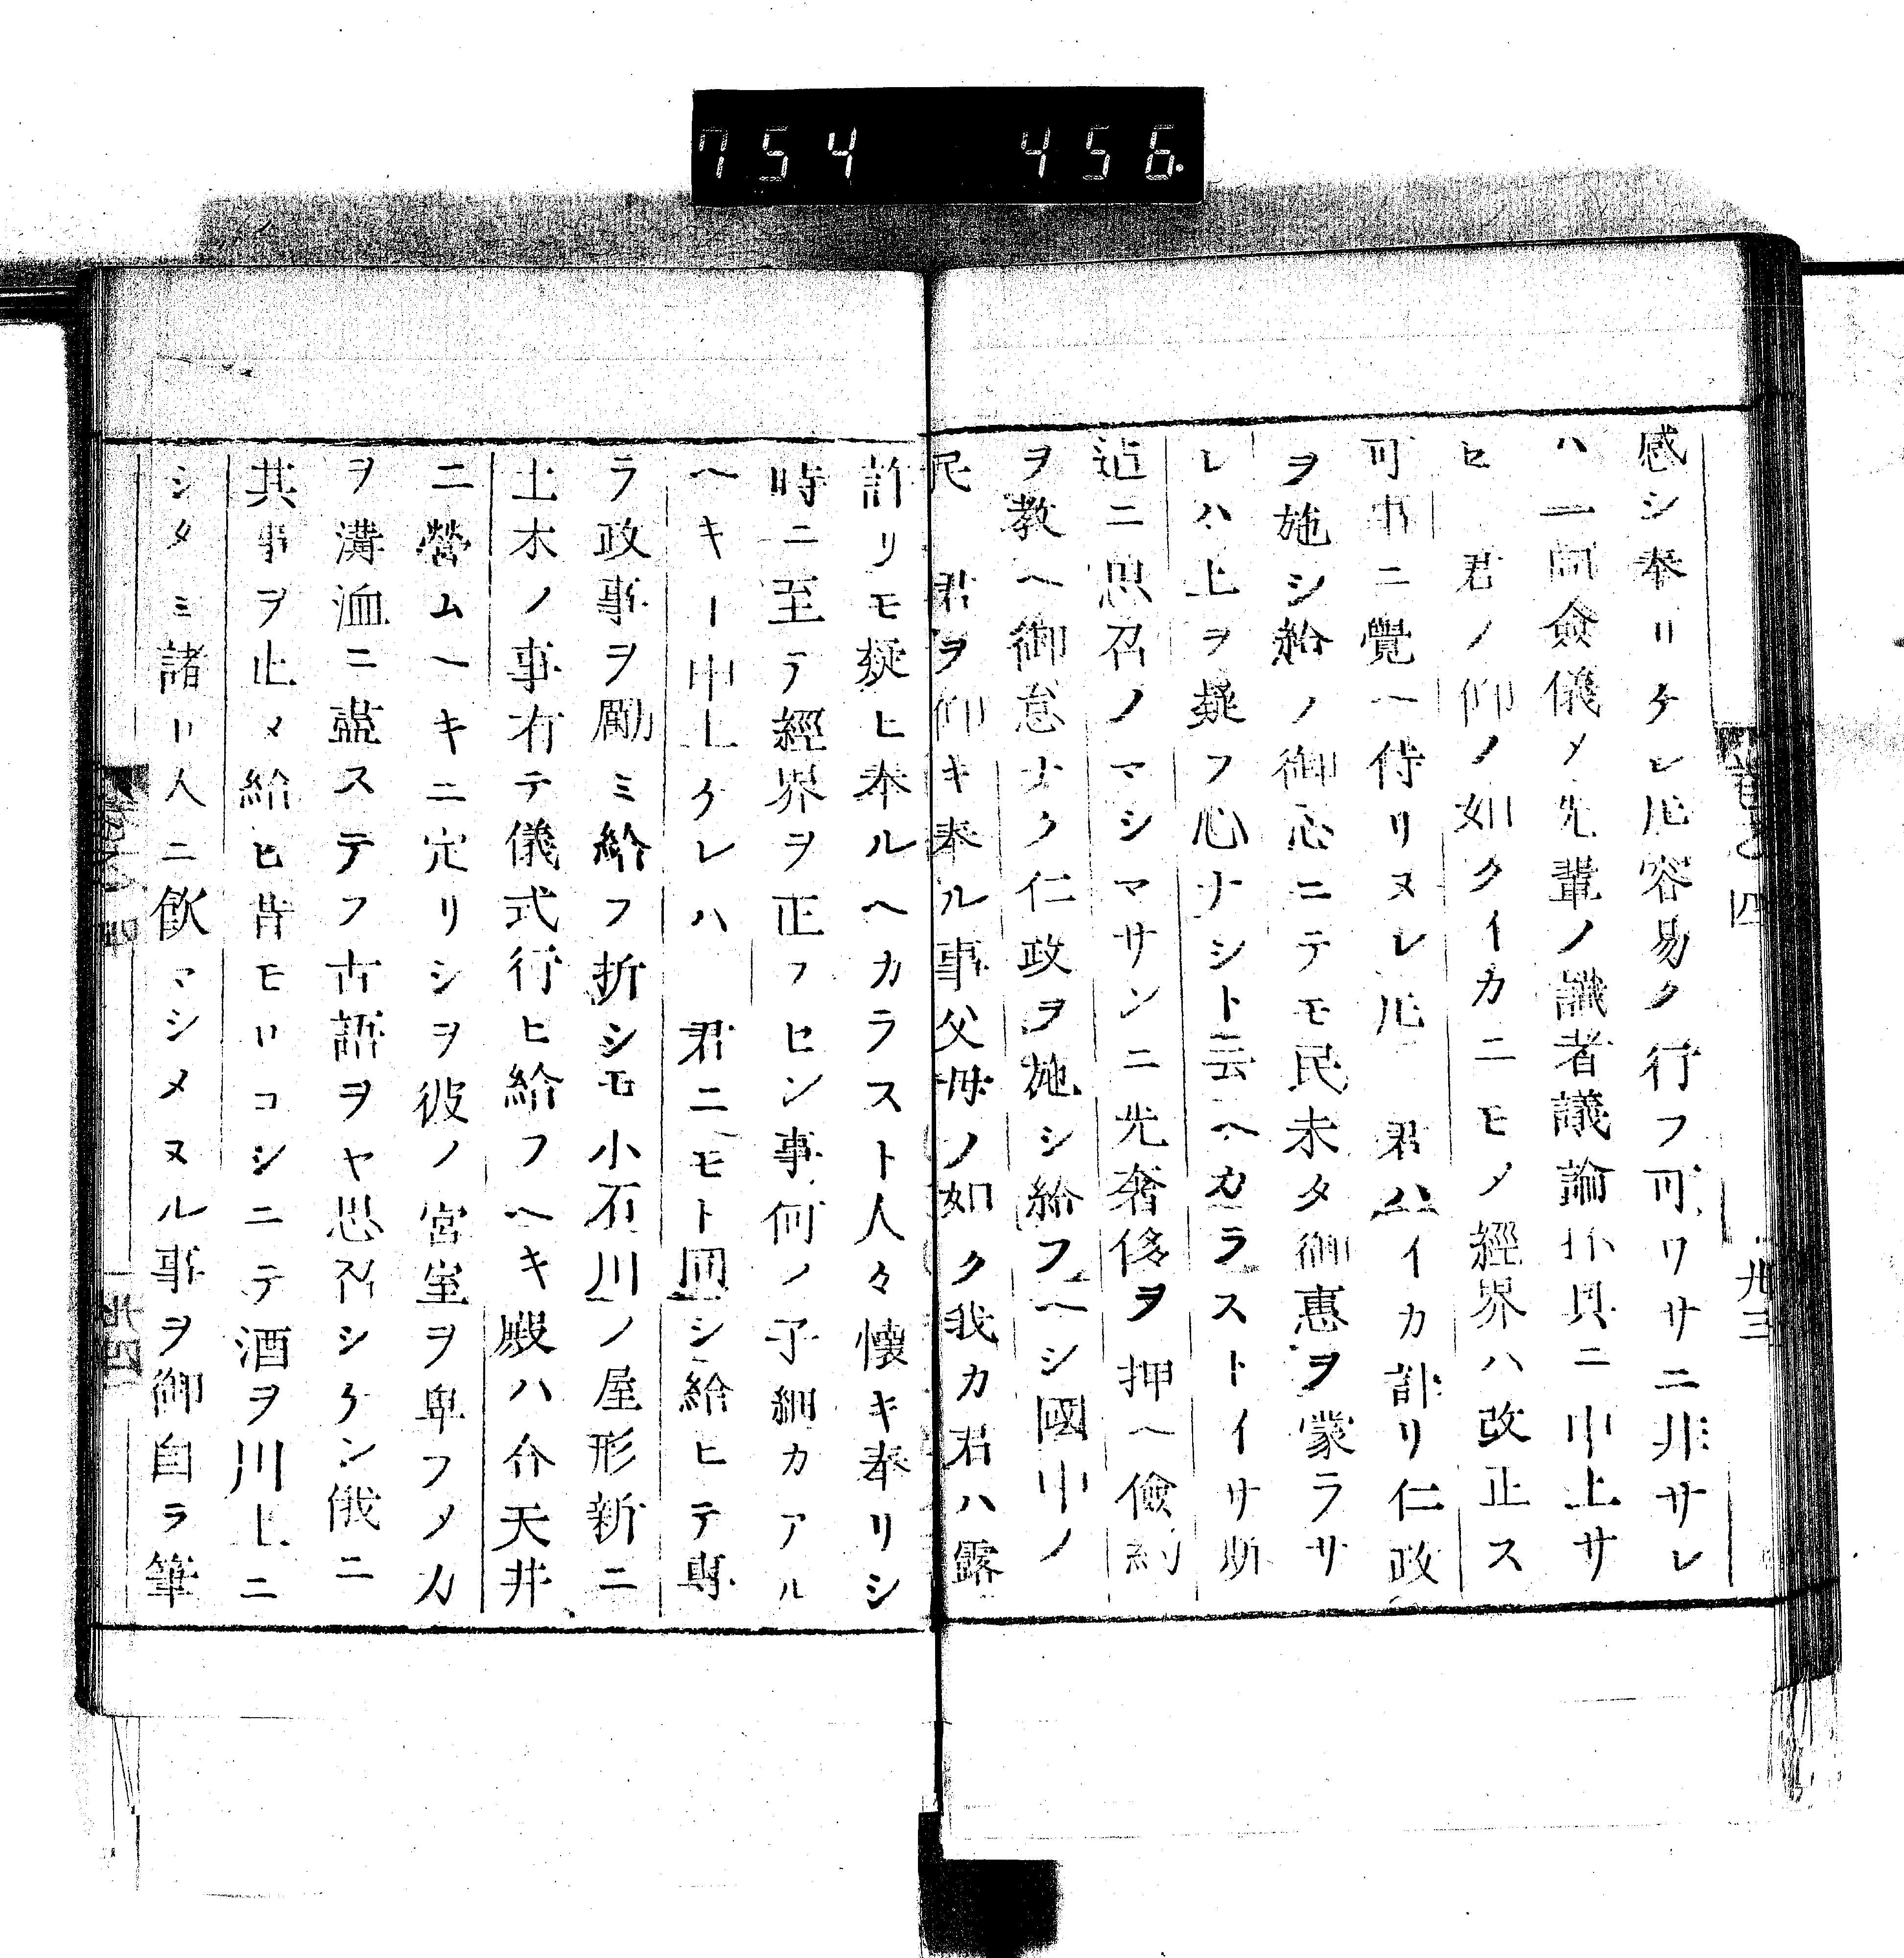 754 456
感シ奉リケレ𪜈容易ク行フ可ワサニ非サレ
ハ一同僉儀メ先輩ノ識者議論亦具ニ申上サ
セ 君ノ仰ノ如クイカニモメ經界ハ改正ス
可事ニ覺ヘ侍リヌレ𪜈 君ハイカ計リ仁政
ヲ施シ給ノ御心ニテモ民未タ御惠ヲ蒙ラサ
レハ上ヲ疑フ心ナシト云ヘカラストイサ斯
迠ニ思召ノマシマサンニ先奢侈ヲ押ヘ儉約
ヲ教ヘ御怠ナク仁政ヲ施シ給フヘシ國中ノ
民 君ヲ仰キ奉ル事父母ノ如ク我カ君ハ露
許リモ疑ヒ奉ルヘカラスト人々懐キ奉リシ
時ニ至テ經界ヲ正フセン事何ノ子細カアル
ヘキー申上ケレハ 君ニモト同シ給ヒテ専
ラ政事ヲ勵ミ給フ折シモ小石川ノ屋形新ニ
土木ノ事有テ儀式行ヒ給フヘキ殿ハ合天井
ニ營ムヘキニ定リシヲ彼ノ宮室ヲ卑フメカ
ヲ溝洫ニ盡ステフ古語ヲヤ思召シケン俄ニ
其事ヲ止メ給ヒ昔モリコシニテ酒ヲ川上ニ
シタミ諸リ人ニ飲マシメヌル事ヲ御自ラ筆
巻之四
卅三
卅四